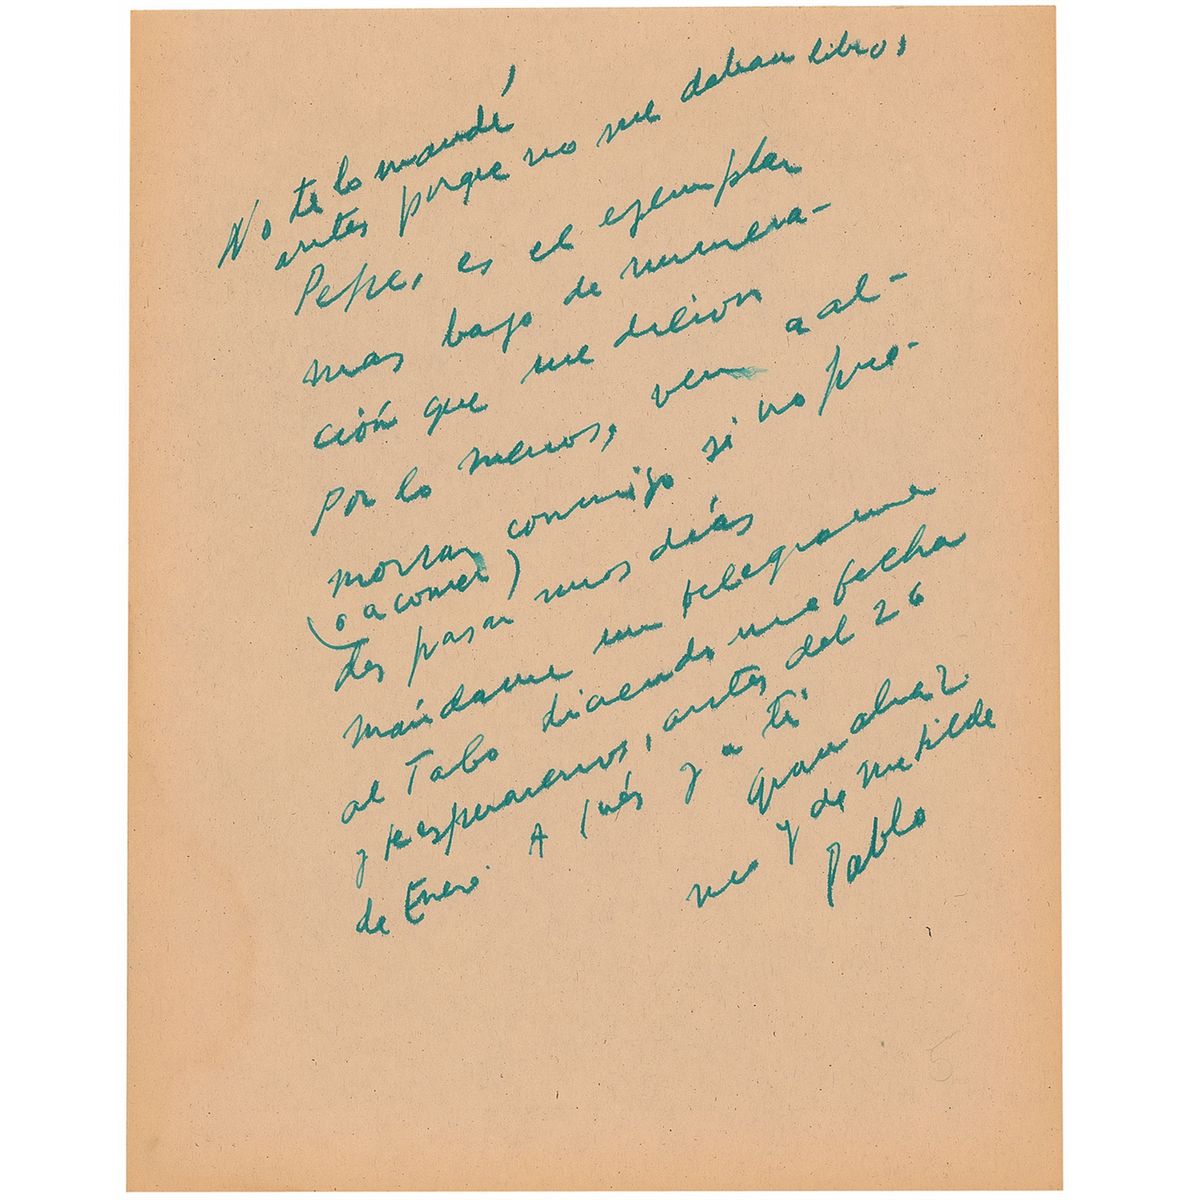 No te lo mandé
antes porque no me daban libros
Pepe, es el ejemplar
mas bajo de numera-
ción que me dieron
Por lo menos, ven a al-
morzar conmigo si no pue-
(o a comer)
des pasar unos días
mándame un telegrama
al Tabo diciendo una fecha
y te esperaremos, antes del 26
de Enero. A Inés y a ti
gran abraz
mio y de Matilde
Pablo
5